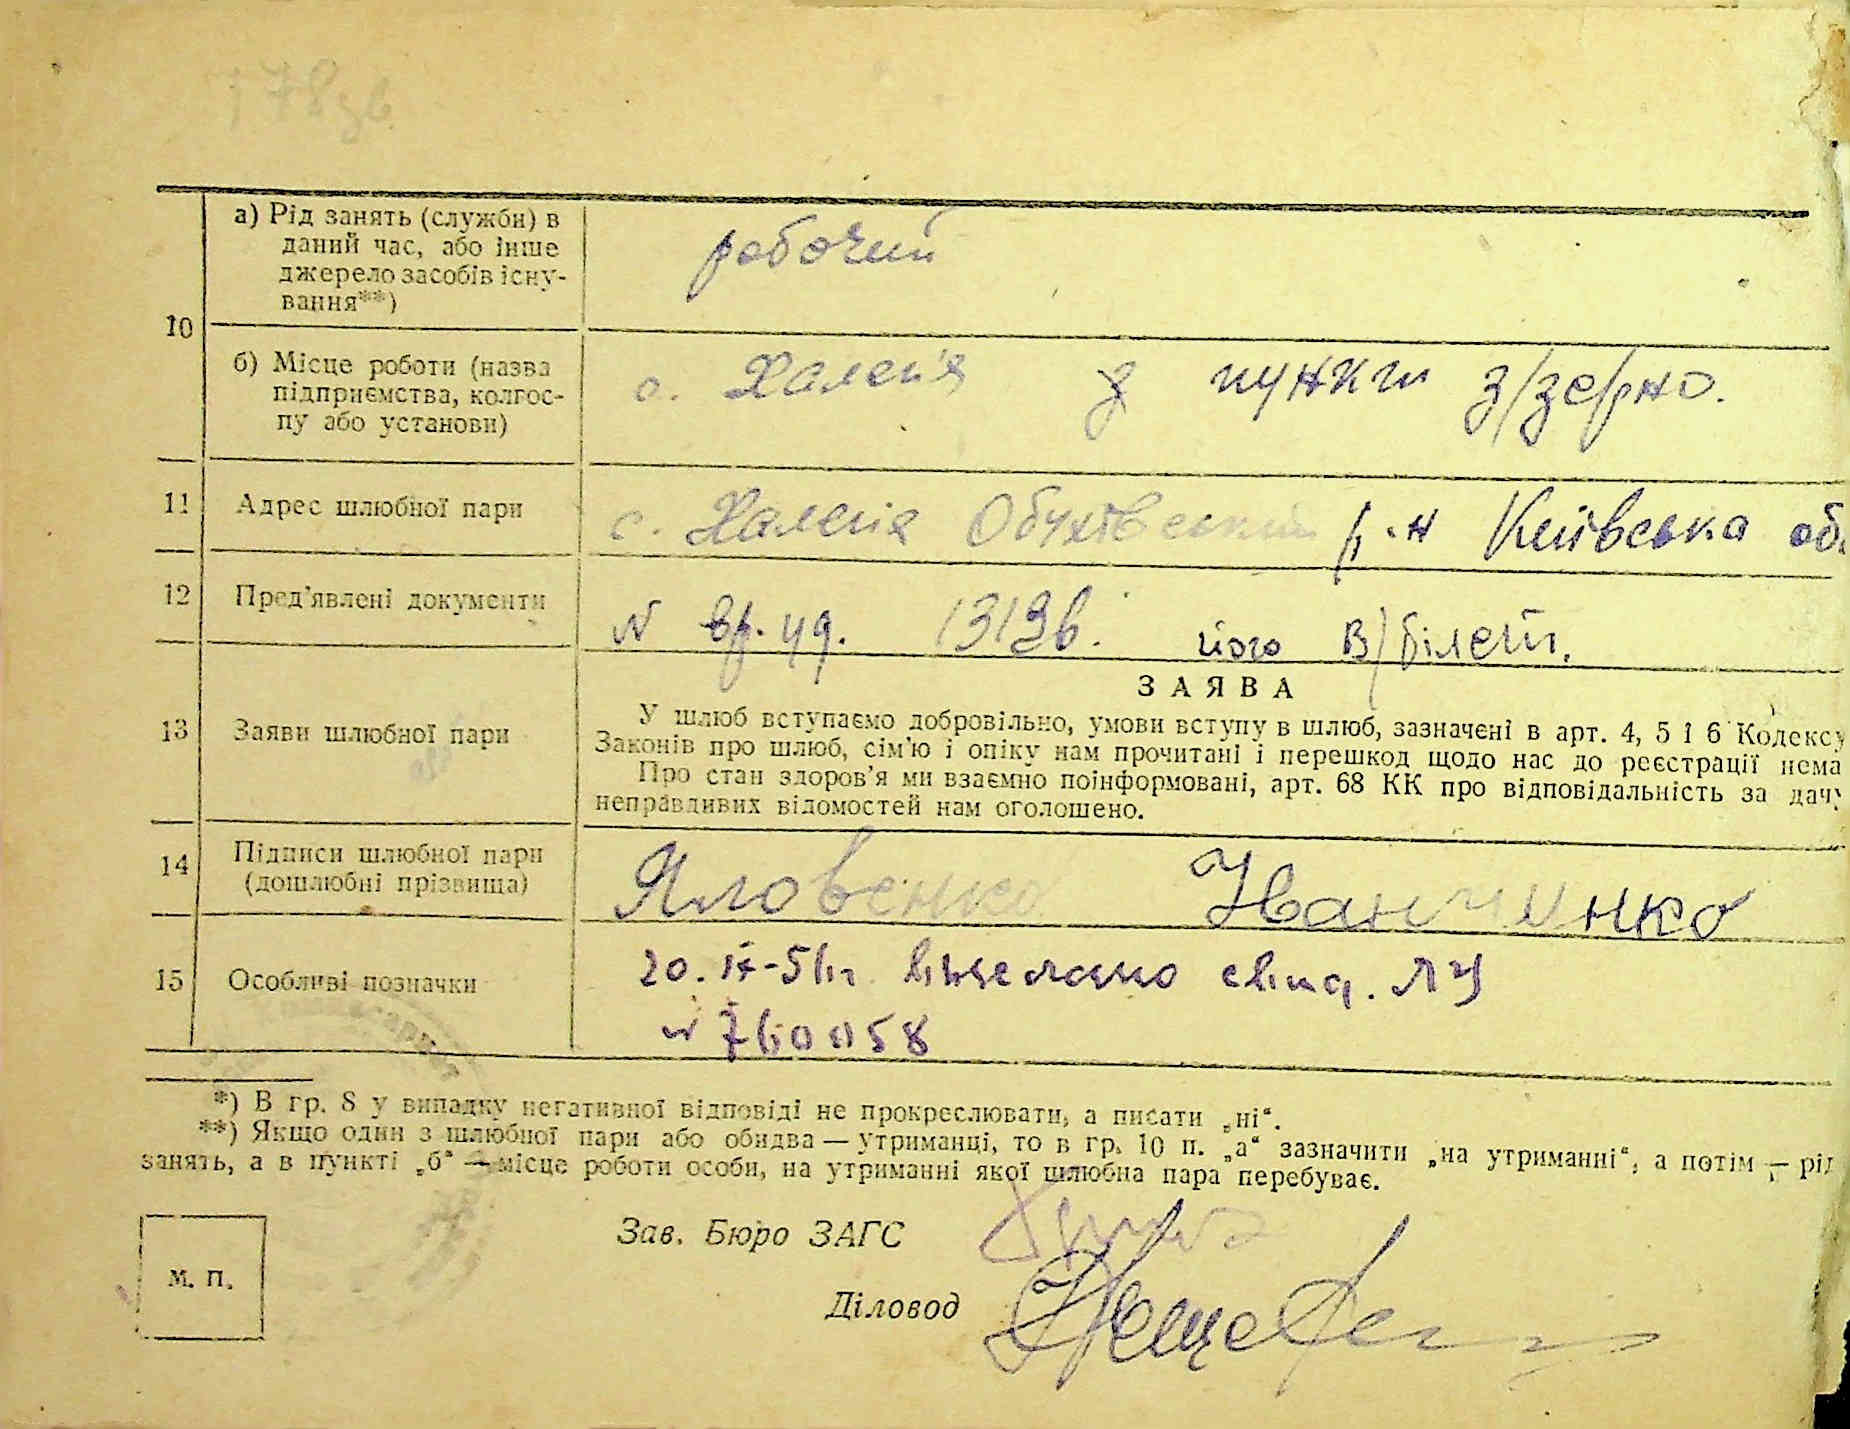 178зв
а) Рід занять (служби) в
даний час, або інше
джерело засобів існу-
вання**)
робочий
10
б) Місце роботи (назва
підприємства, колгос-
пу або установи)
с. Халеп'я з пункт з/зерно.
11 Адрес шлюбної пари
с. Халеп'я Обухівський р-н Київська об.
12 Пред'явлені документи
N вр. уд. 1313в. його В/білет.
13 Заяви шлюбної пари
ЗАЯВА
У шлюб вступаємо добровільно, умови вступу в шлюб, зазначені в арт. 4, 5 і 6 Кодексу
Законів про шлюб, сім'ю і опіку нам прочитані і перешкод щодо нас до реєстрації нема
Про стан здоров'я ми взаємно поінформовані, арт. 68 КК про відповідальність за дачу
неправдивих відомостей нам оголошено.
14 Підписи шлюбної пари
(дошлюбні прізвища)
Яловенко Іванченко
15 Особливі позначки
20. IX-51р. свид. ЛУ
N 760058
*) В гр. 8 у випадку негативної відповіді не прокреслювати, а писати „ні“.
**) Якщо один з шлюбної пари або обидва — утриманці, то в гр. 10 п. „а“ зазначити „на утриманні“, а потім — рід
занять, а в пункті „б“ — місце роботи особи, на утриманні якої шлюбна пара перебуває.
Зав. Бюро ЗАГС
М. П.
Діловод